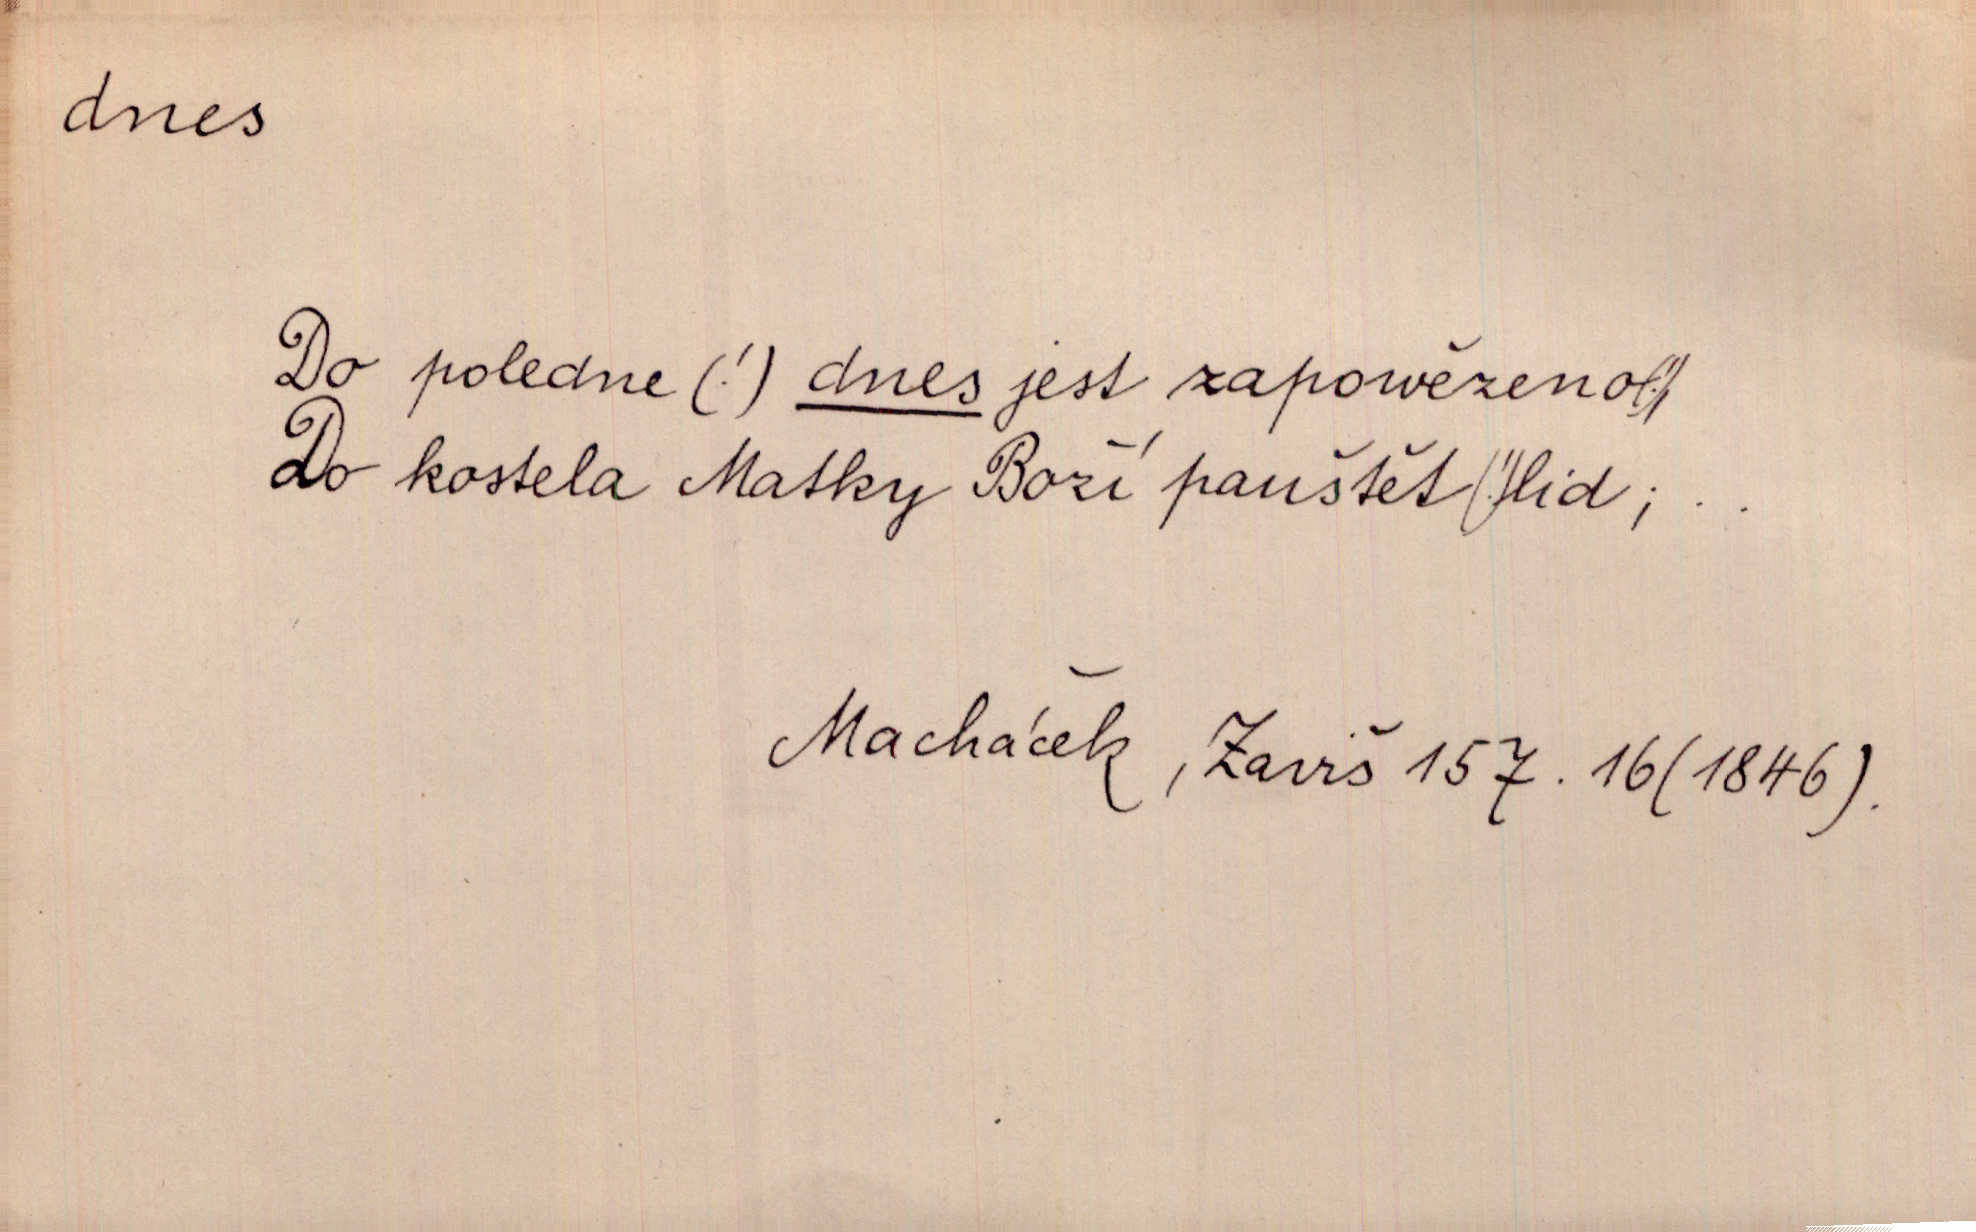 dnes
Do poledne (!) dnes jest zapowězeno (!),
Do kostela Matky Boží pauštět (!) lid; . .
Macháček, Zaviš 157. 16 (1846).